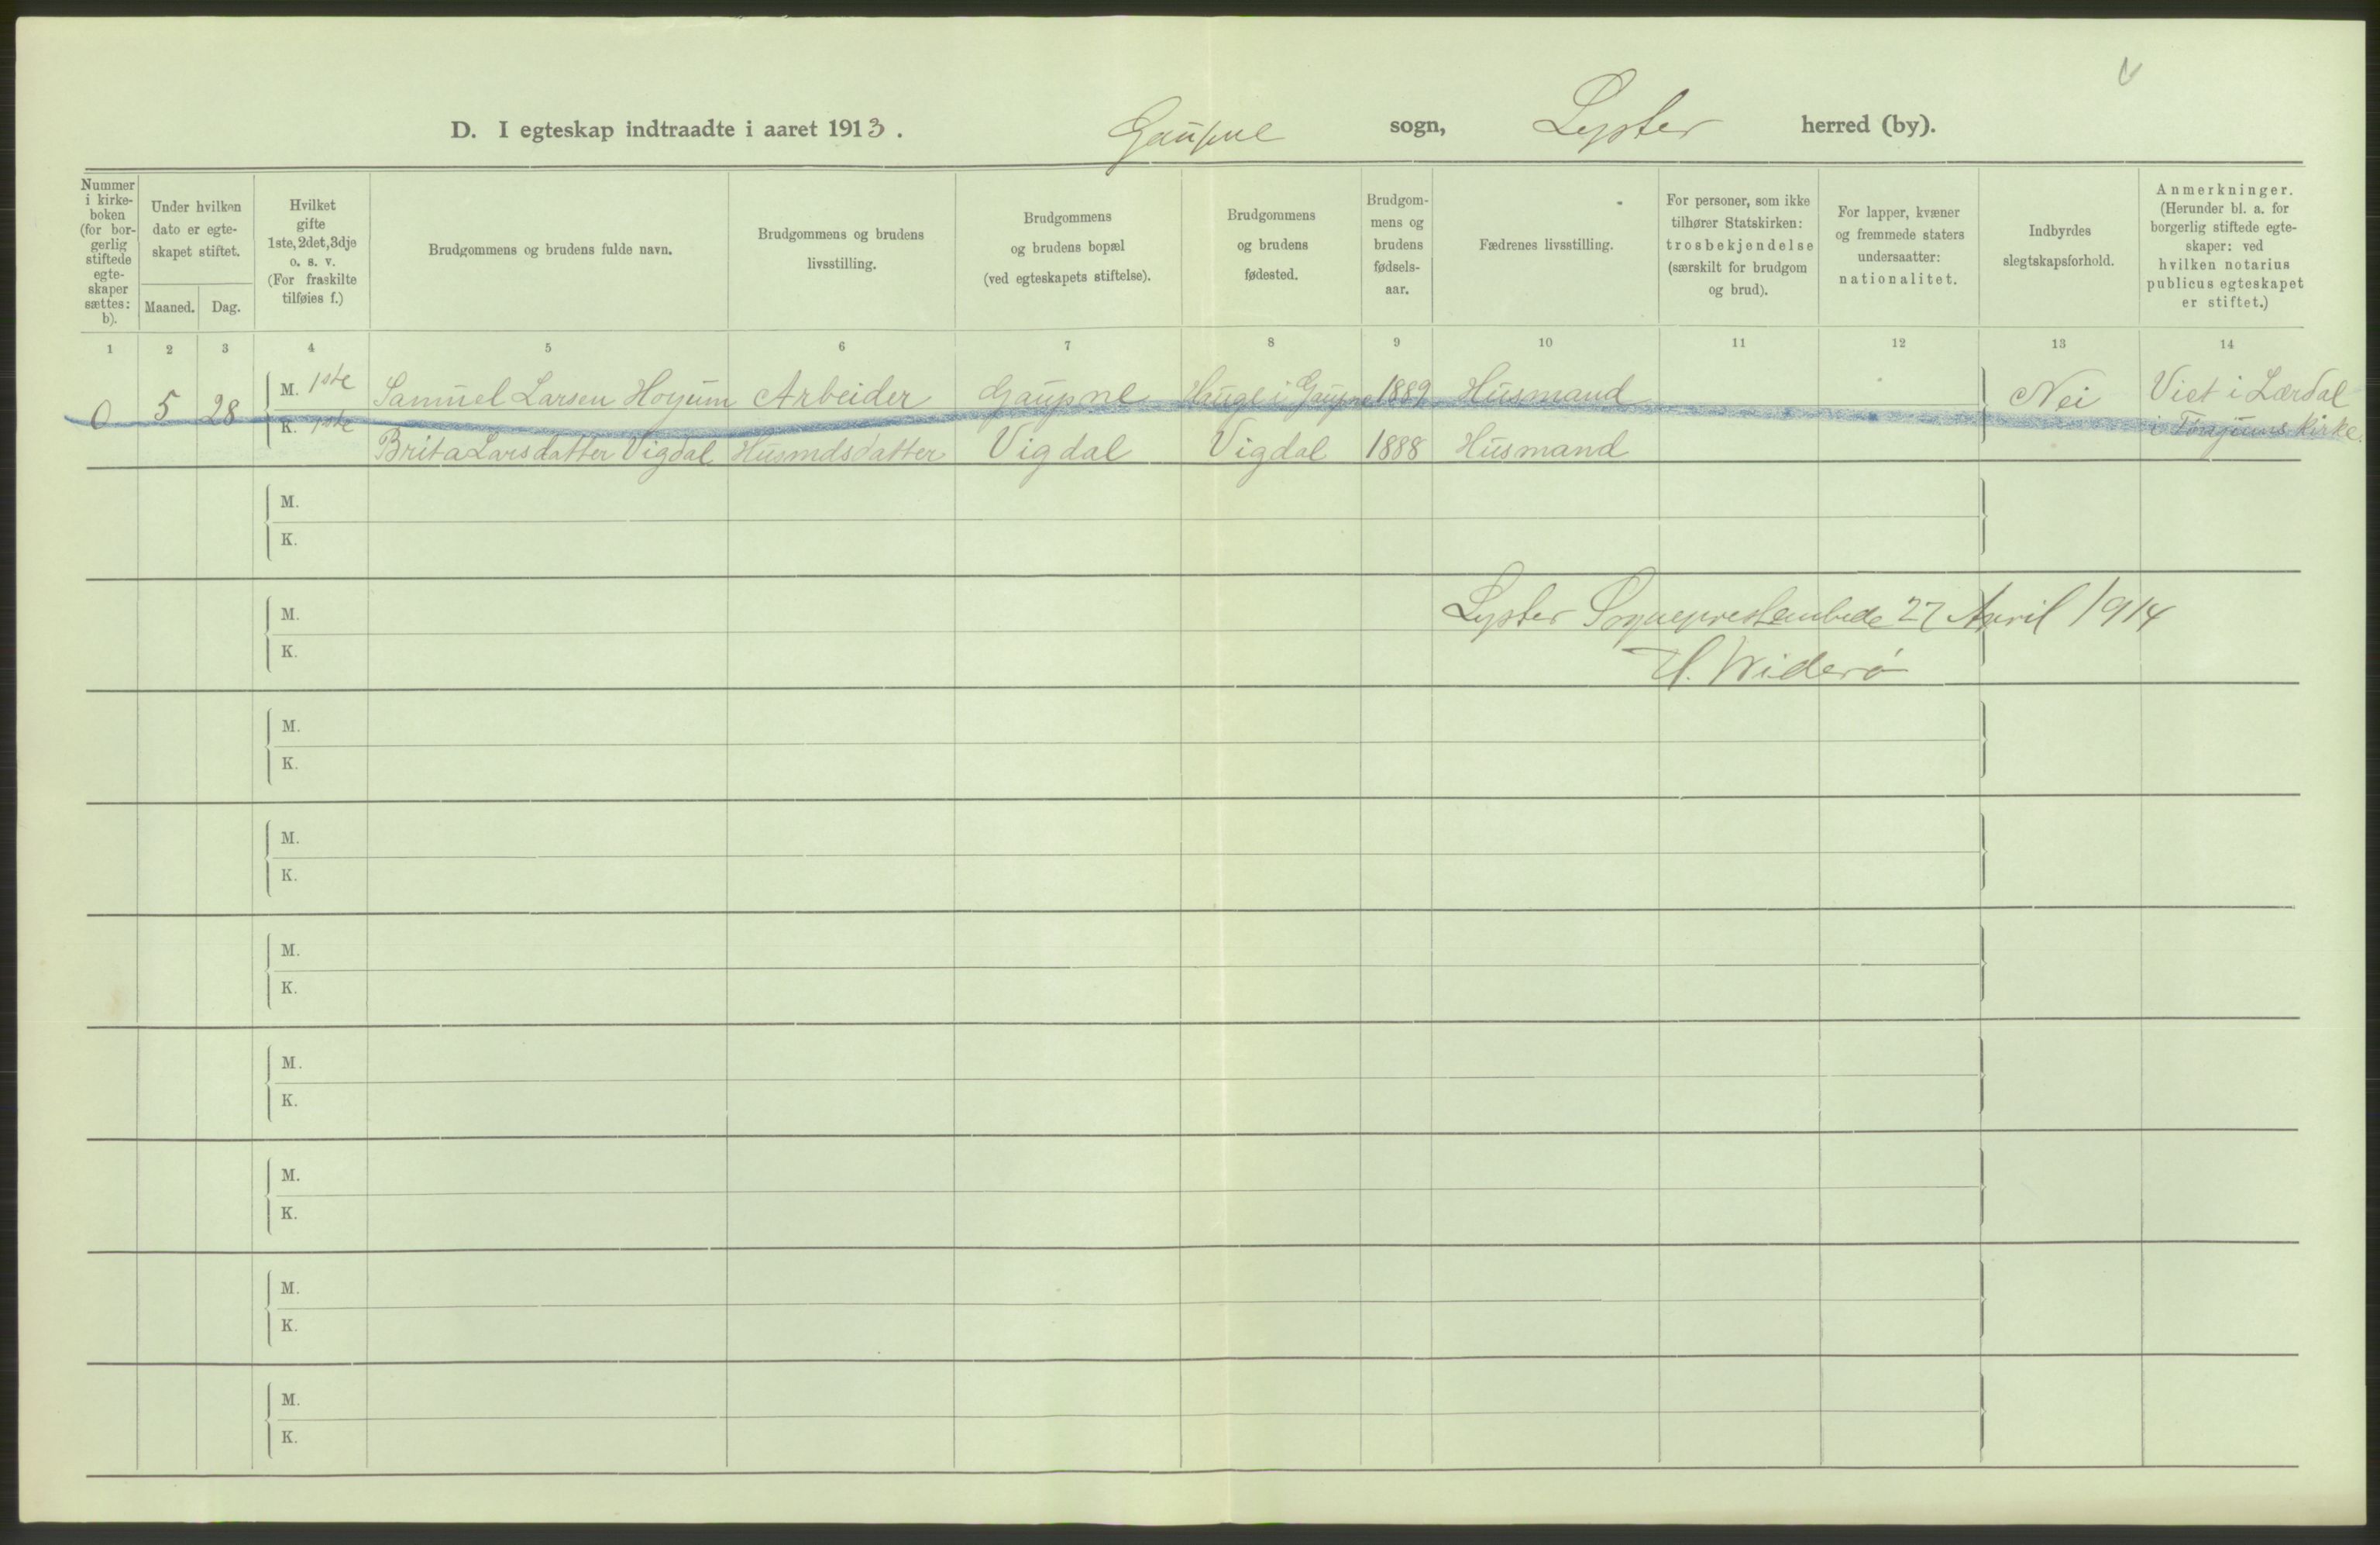 D. I egteskap indtraadte i aaret 1913. Gaupne sogn, Lyster herred (by).
Nummer i kirkeboken (for borgerlig stiftede egteskaper sættes: b).
Under hvilken dato er egteskapet stiftet.
Maaned. Dag.
Hvilket gifte 1ste, 2det, 3dje o. s. v. (For fraskilte tilføies f.)
Brudgommens og brudens fulde navn.
Brudgommens og brudens livsstilling.
Brudgommens og brudens bopæl (ved egteskapets stiftelse).
Brudgommens og brudens fødested.
Brudgommens og brudens fødselsaar.
Fædrenes livsstilling.
For personer, som ikke tilhører Statskirken: trosbekjendelse (særskilt for brudgom og brud).
For lapper, kvæner og fremmede staters undersaatter: nationalitet.
Indbyrdes slegtskapsforhold.
Anmerkninger. (Herunder bl. a. for borgerlig stiftede egteskaper: ved hvilken notarius publicus egteskapet er stiftet.)
1 2 3 4 5 6 7 8 9 10 11 12 13 14
0 5 28 M. 1ste Samuel Larsen Hoyum Arbeider Gaupne Hauge i Gaupne 1889 Husmand Nei Viet i Lærdal
K. 1ste Brita Larsdatter Vigdal Husmdsdatter Vigdal Vigdal 1888 Husmand i Tønjums Kirke.
M.
K.
M. Lyster Sogneprestembede 27 April 1914
K. H. Widerø
M.
K.
M.
K.
M.
K.
M.
K.
M.
K.
M.
K.
M.
K.